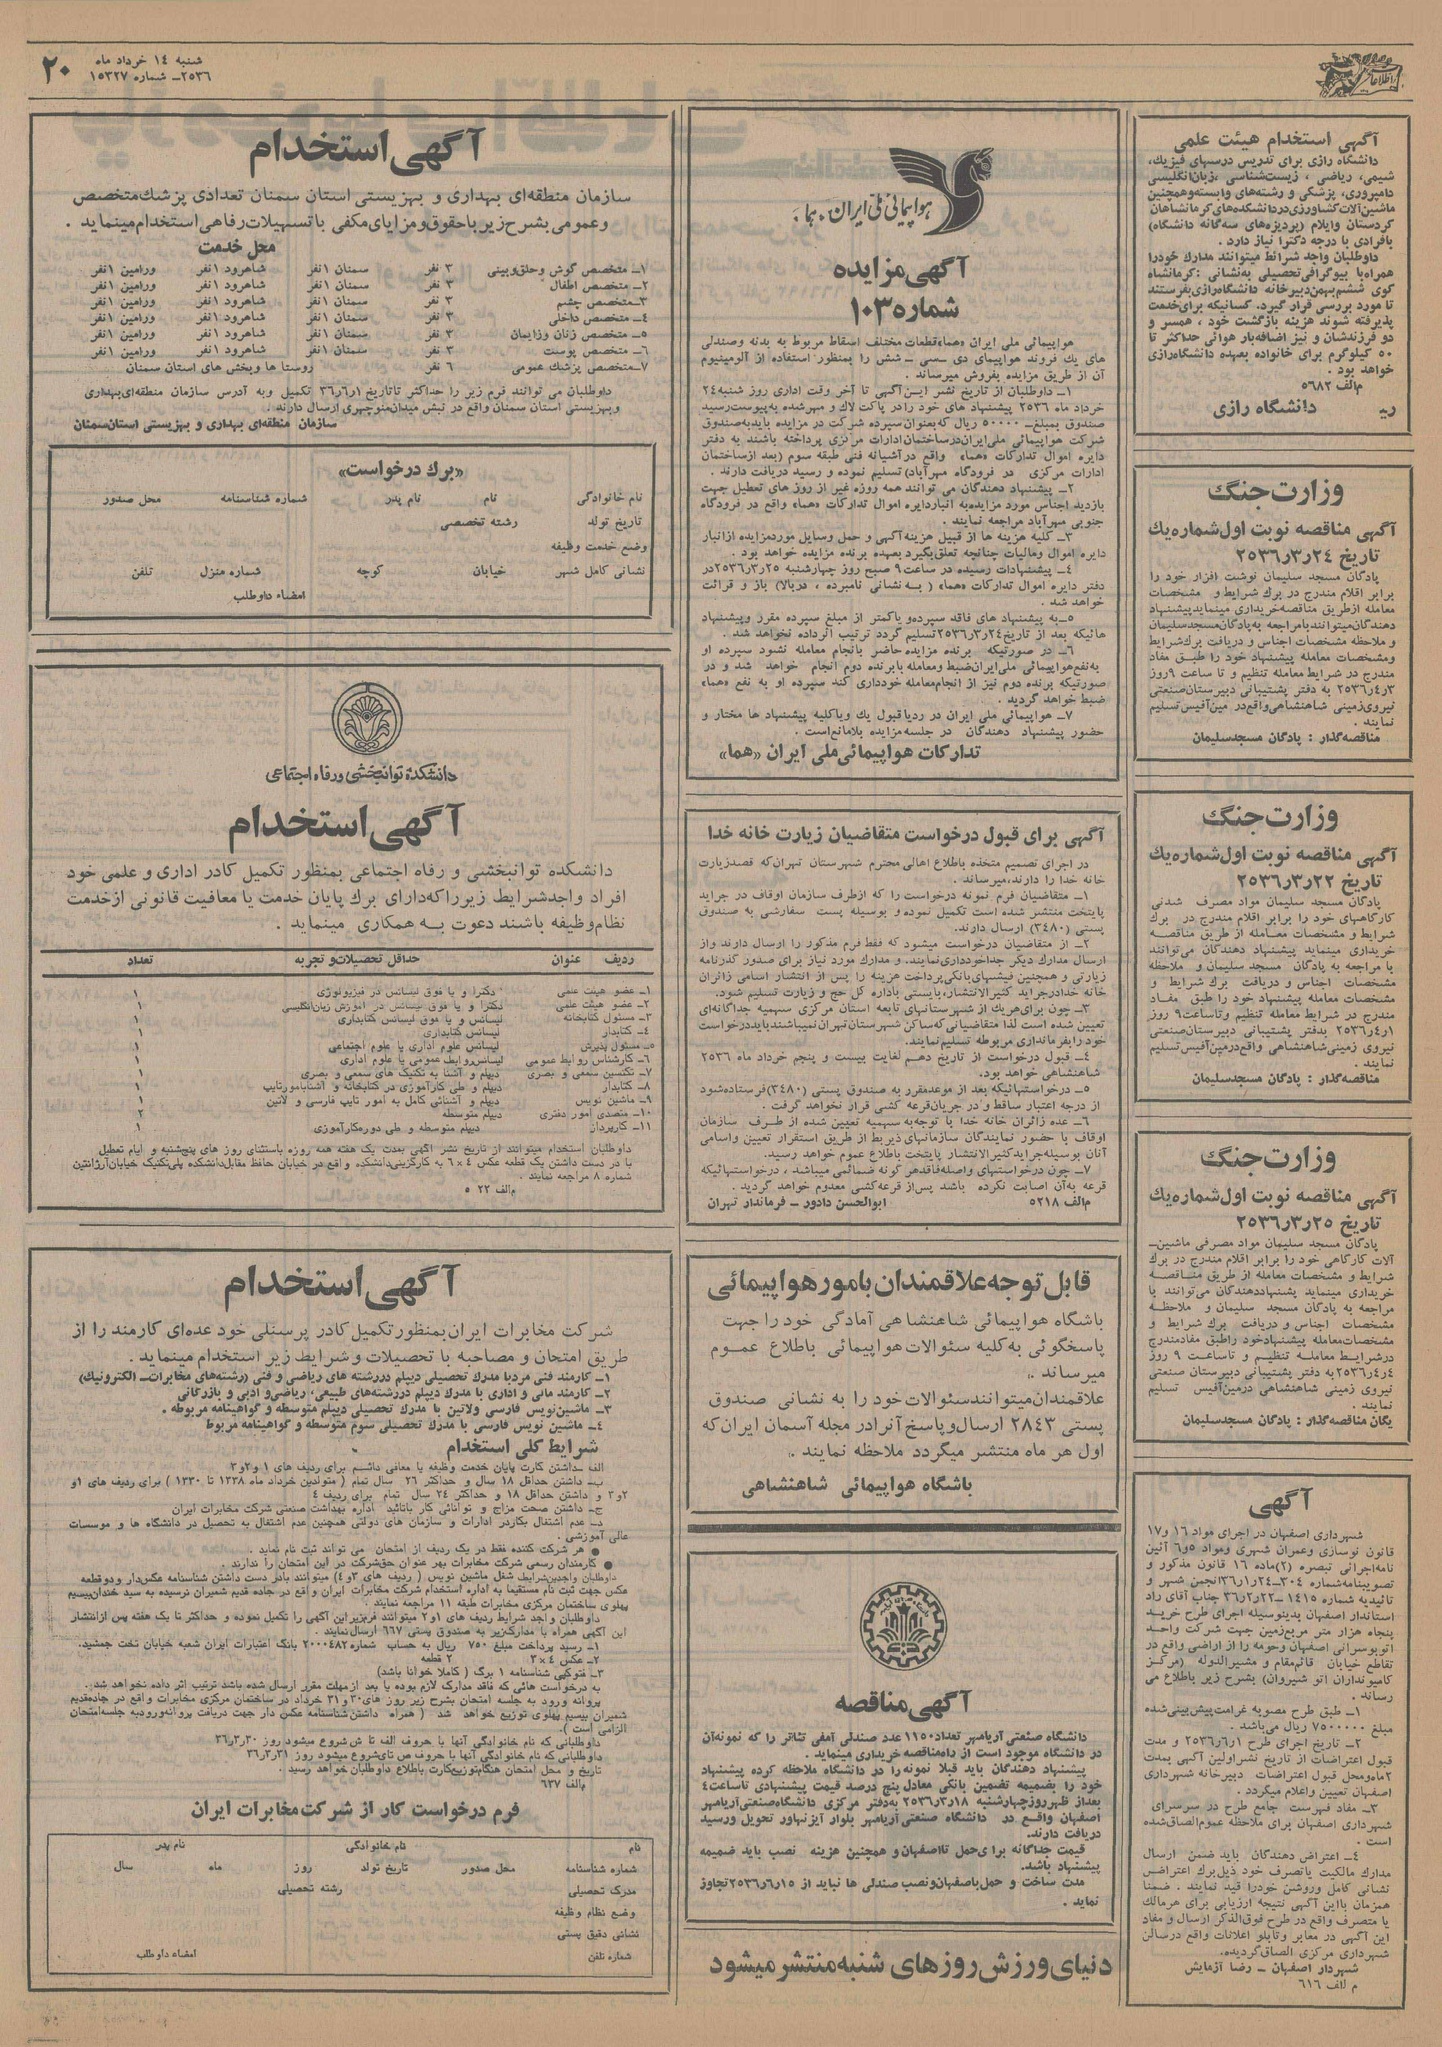 شنبه ١٤ خرداد ماه
٢٥٣٦ــ شماره ١٥٣٢٧
٢٠
اطلاعات
آگهی استخدام هیئت علمی
دانشگاه رازی برای تدریس درسهای فیزیك،
شیمی، ریاضی ، زیست‌شناسی ، زبان‌انگلیسی
دامپروری، پزشکی و رشته‌های وابسته‌وهمچنین
ماشین‌آلات‌کشاورزی‌دردانشکده‌های‌کرمانشاهان
کردستان وایلام (پردیزه‌های سه‌گانه دانشگاه)
بافرادی با درجه دکترا نیاز دارد .
داوطلبان واجد شرائط میتوانند مدارك خودرا
همراه‌با بیوگرافی‌تحصیلی به‌نشانی :کرمانشاه
کوی ششم‌بهمن‌دبیرخانه دانشگاه‌رازی‌بفرستند
تا مورد بررسی قرار گیرد. کسانیکه برای‌خدمت
پذیرفته شوند هزینه بازگشت خود ، همسر و
دو فرزندشان و نیز اضافه‌بار هوائی حداکثر تا
٥٠ کیلوگرم برای خانواده بعهده دانشگاه‌رازی
خواهد بود .
م‌الف ٥٦٨٢
دانشگاه رازی
وزارت‌جنگ
آگهی مناقصه نوبت اول‌شماره‌یك
تاریخ ٢٥٣٦٫٣٫٢٤
پادگان مسجد سلیمان نوشت افزار خود را
برابر اقلام مندرج در برك شرایط و مشخصات
معامله ازطریق مناقصه‌خریداری مینماید‌پیشنهاد
دهندگان‌میتوانند‌بامراجعه به‌پادگان‌مسجدسلیمان
و ملاحظه مشخصات اجناس و دریافت برك‌شرایط
ومشخصات معامله پیشنهاد خود را طبق مفاد
مندرج در شرایط معامله تنظیم و تا ساعت ٩روز
٢٥٣٦٫٤٫٣ به دفتر پشتیبانی دبیرستان‌صنعتی
نیروی‌زمینی شاهنشاهی‌واقع‌در مین‌آفیس‌تسلیم
نمایند .
مناقصه‌گذار : پادگان مسجدسلیمان
وزارت‌جنگ
آگهی مناقصه نوبت اول‌شماره‌یك
تاریخ ٢٥٣٦٫٣٫٢٢
پادگان مسجد سلیمان مواد مصرف شدنی
کارگاههای خود را برابر اقلام مندرج در برك
شرایط و مشخصات معامله از طریق مناقصه
خریداری مینماید پیشنهاد دهندگان می‌توانند
با مراجعه به پادگان مسجد سلیمان و ملاحظه
مشخصات اجناس و دریافت برك شرایط و
مشخصات معامله پیشنهاد خود را طبق مفاد
مندرج در شرایط معامله تنظیم وتاساعت ٩ روز
٢٥٣٦٫٤٫١ بدفتر پشتیبانی دبیرستان‌صنعتی
نیروی زمینی شاهنشاهی واقع‌درمین‌آفیس تسلیم
نمایند .
مناقصه‌گذار : پادگان مسجدسلیمان
وزارت‌جنگ
آگهی مناقصه نوبت اول‌شماره‌یك
تاریخ ٢٥٣٦٫٣٫٢٥
پادگان مسجد سلیمان مواد مصرفی ماشین‌ــ
آلات کارگاهی خود را برابر اقلام مندرج در برك
شرایط و مشخصات معامله از طریق مناقصه
خریداری مینماید پشنهاددهندگان می‌توانند با
مراجعه به پادگان مسجد سلیمان و ملاحظه
مشخصات اجناس و دریافت برك شرایط و
مشخصات‌معامله پیشنهادخود راطبق مفادمندرج
درشرایط معامله تنظیم و تاساعت ٩ روز
٢٥٣٦٫٤٫٤ به دفتر پشتیبانی دبیرستان صنعتی
نیروی زمینی شاهنشاهی درمین‌آفیس تسلیم
نمایند .
یگان مناقصه‌گذار : پادگان مسجدسلیمان
آگهی
شهرداری اصفهان در اجرای مواد ١٦ و١٧
قانون نوسازی وعمران شهری ومواد ٥و٦ آئین
نامه‌اجرائی تبصره (٢)ماده ١٦ قانون مذکور و
تصویبنامه‌شماره ٣٠٤ــ٣٦٫١٫٢٤انجمن شهر و
تائیدیه شماره ١٤١٥ ــ٣٦٫٢٫٢٢ جناب آقای راد
استاندار اصفهان بدینوسیله اجرای طرح خرید
پنجاه هزار متر مربع‌زمین جهت شرکت واحد
اتوبوسرانی اصفهان وحومه را از اراضی واقع در
تقاطع خیابان قائم‌مقام و مشیرالدوله (مرکز
کامیونداران اتو شیروان) بشرح زیر باطلاع می
رساند .
١ــ طبق طرح مصوبه غرامت‌پیش‌بینی‌شده
مبلغ ٧٥٠٠٠٠٠ ریال می‌باشد .
٢ــ تاریخ اجرای طرح ٢٥٣٦٫٦٫١ و مدت
قبول اعتراضات از تاریخ نشراولین آگهی بمدت
٢ماه‌ومحل قبول اعتراضات دبیرخانه شهرداری
اصفهان تعیین واعلام میگردد .
٣ــ مفاد فهرست جامع طرح در سرسرای
شهرداری اصفهان برای ملاحظه عموم‌الصاق‌شده
است .
٤ــ اعتراض دهندگان باید ضمن ارسال
مدارك مالکیت یاتصرف خود ذیل‌برك اعتراض
نشانی کامل وروشن خودرا قید نمایند . ضمنا
همزمان بااین آگهی نتیجه ارزیابی برای هرمالك
یا متصرف واقع در طرح فوق‌الذکر ارسال و مفاد
این آگهی در معابر وتابلو اعلانات واقع درسالن
شهرداری مرکزی الصاق‌گردیده.
شهردار اصفهان ــ رضا آزمایش
م الف ٦١٦
هواپیمائی ملی ایران ، هما .
آگهی مزایده
شماره ١٠٣
هواپیمائی ملی ایران «هما»قطعات مختلف اسقاط مربوط به بدنه وصندلی
های یك فروند هواپیمای دی ــ سی ــ شش را بمنظور استفاده از آلومینیوم
آن از طریق مزایده بفروش میرساند .
١ــ داوطلبان از تاریخ نشر این‌آگهی تا آخر وقت اداری روز شنبه٢٤
خرداد ماه ٢٥٣٦ پیشنهاد های خود رادر پاکت لاك و مهرشده به‌پیوست‌رسید
صندوق بمبلغــ ٥٠٠٠٠ ریال که‌بعنوان‌سپرده شرکت در مزایده باید‌به‌صندوق
شرکت هواپیمائی ملی‌ایران‌درساختمان‌ادارات مرکزی پرداخته باشند به دفتر
دایره اموال تدارکات «هما» واقع درآشیانه فنی طبقه سوم (بعد ازساختمان
ادارات مرکزی در فرودگاه مهرآباد) تسلیم نموده و رسید دریافت دارند .
٢ــ پیشنهاد دهندگان می توانند همه روزه غیر از روز های تعطیل جهت
بازدید اجناس مورد مزایده‌به انبار‌دایره اموال تدارکات «هما» واقع در فرودگاه
جنوبی مهرآباد مراجعه نمایند .
٣ــ کلیه هزینه ها از قبیل هزینه‌آگهی و حمل وسایل موردمزایده ازانبار
دایره اموال ومالیات چنانچه تعلق‌بگیرد بعهده برنده مزایده خواهد بود .
٤ــ پیشنهادات رسیده در ساعت ٩ صبح روز چهارشنبه ٢٥٣٦٫٣٫٢٥در
دفتر دایره اموال تدارکات «هما» ( به نشانی نامبرده ، دربالا) باز و قرائت
خواهد شد .
٥ــ‌به پیشنهاد های فاقد سپرده‌و یاکمتر از مبلغ سپرده مقرر وپیشنهاد
هائیکه بعد از تاریخ٢٥٣٦٫٣٫٢٤تسلیم گردد ترتیب اثرداده نخواهد شد .
٦ــ در صورتیکه برنده مزایده حاضر بانجام معامله نشود سپرده او
به‌نفع‌هواپیمائی ملی‌ایران‌ضبط ومعامله بابرنده دوم انجام خواهد شد و در
صورتیکه برنده دوم نیز از انجام‌معامله خودداری کند سپرده او به نفع «هما»
ضبط خواهد گردید .
٧ــ هواپیمائی ملی ایران در ردیاقبول یك ویاکلیه پیشنهاد ها مختار و
حضور پیشنهاد دهندگان در جلسه مزایده بلامانع‌است .
تدارکات هواپیمائی ملی ایران «هما»
آگهی برای قبول درخواست متقاضیان زیارت خانه خدا
در اجرای تصمیم متخذه باطلاع اهالی محترم شهرستان تهران‌که قصدزیارت
خانه خدا را دارند،میرساند .
١ــ متقاضیان فرم نمونه درخواست را که ازطرف سازمان اوقاف در جراید
پایتخت منتشر شده است تکمیل نموده‌و بوسیله پست سفارشی به صندوق
پستی (٣٤٨٠) ارسال دارند.
٢ــ از متقاضیان درخواست میشود که فقط فرم مذکور را ارسال دارند واز
ارسال مدارك دیگر جداخودداری‌نمایند. و مدارك مورد نیاز برای صدور گذرنامه
زیارتی و همچنین فیشهای‌بانکی‌پرداخت هزینه را پس از انتشار اسامی زائران
خانه خدادرجراید کثیرالانتشار،بایستی باداره کل حج و زیارت تسلیم شود.
٣ــ چون برای‌هریك از شهرستانهای تابعه استان مرکزی سهمیه جداگانه‌ای
تعیین شده است لذا متقاضیانی‌که‌ساکن شهرستان تهران‌نمیباشند‌باید‌درخواست
خود رابفرمانداری مربوطه تسلیم‌نمایند.
٤ــ قبول درخواست از تاریخ دهم لغایت بیست و پنجم خرداد ماه ٢٥٣٦
شاهنشاهی خواهد بود.
٥ــ درخواستهائیکه بعد از موعدمقرر به صندوق پستی (٣٤٨٠)فرستاده‌شود
از درجه اعتبار ساقط و‌در جریان‌قرعه کشی قرار نخواهد گرفت .
٦ــ عده زائران خانه خدا با توجه‌به سهمیه تعیین شده از طرف سازمان
اوقاف با حضور نمایندگان سازمانهای ذیربط از طریق استقرار تعیین واسامی
آنان بوسیله‌جراید‌کثیرالانتشار پایتخت باطلاع عموم خواهد رسید.
٧ــ چون درخواستهای واصله‌فاقد‌هر گونه ضمائمی میباشد ، درخواستهائیکه
قرعه به‌آن اصابت نکرده باشد پس‌از قرعه‌کشی معدوم خواهد گردید .
م‌الف ٥٢١٨
ابوالحسن دادور ــ فرماندار تهران
قابل توجه علاقمندان بامور هواپیمائی
باشگاه هواپیمائی شاهنشاهی آمادگی خود را جهت
پاسخگوئی به‌کلیه سئوالات هواپیمائی باطلاع عموم
میرساند .
علاقمندان‌میتوانند‌سئوالات خود را به نشانی صندوق
پستی ٢٨٤٣ ارسال‌و‌پاسخ آنرا‌در مجله آسمان ایران‌که
اول هر ماه منتشر میگردد ملاحظه نمایند .
باشگاه هواپیمائی شاهنشاهی
آگهی مناقصه
دانشگاه صنعتی آریامهر تعداد١١٥٠ عدد صندلی آمفی تئاتر را که نمونه‌آن
در دانشگاه موجود است از راه‌مناقصه خریداری مینماید.
پیشنهاد دهندگان باید قبلا نمونه را در دانشگاه ملاحظه کرده پیشنهاد
خود را بضمیمه تضمین بانکی معادل پنج درصد قیمت پیشنهادی تاساعت٤
بعداز ظهرروزچهارشنبه ٢٥٣٦٫٣٫١٨ به‌دفتر مرکزی دانشگاه‌صنعتی‌آریامهر
اصفهان واقع‌ در دانشگاه صنعتی آریامهر بلوار آیزنهاور تحویل ورسید
دریافت دارند.
قیمت جداگانه برا ی‌حمل تااصفهان‌و همچنین هزینه نصب باید ضمیمه
پیشنهاد باشد.
مدت ساخت و حمل‌باصفهان‌ونصب صندلی ها نباید از ٢٥٣٦٫٦٫١٥تجاوز
نماید .
دنیای ورزش روزهای شنبه منتشر میشود
آگهی استخدام
سازمان منطقه‌ای بهداری و بهزیستی استان سمنان تعدادی پزشك متخصص
وعمومی بشرح زیر باحقوق‌و مزایای مکفی با تسهیلات رفاهی استخدام‌مینماید .
محل خدمت
١ــ متخصص گوش وحلق‌و‌بینی ٣ نفر سمنان ١نفر شاهرود ١نفر ورامین ١نفر
٢ــ متخصص اطفال ٣ نفر سمنان ١نفر شاهرود ١نفر ورامین ١نفر
٣ــ‌متخصص چشم ٣ نفر سمنان ١نفر شاهرود ١نفر ورامین ١نفر
٤ــ متخصص داخلی ٣ نفر سمنان ١نفر شاهرود ١نفر ورامین ١نفر
٥ــ متخصص زنان وزایمان ٣ نفر سمنان ١نفر شاهرود ١نفر ورامین ١نفر
٦ــ متخصص پوست ٣ نفر سمنان ١نفر شاهرود ١نفر ورامین ١نفر
٧ــ‌متخصص پزشك عمومی ٦ نفر روستا ها وبخش های استان سمنان
داوطلبان می توانند فرم زیر را حداکثر تاتاریخ ٣٦٫٦٫١ تکمیل وبه آدرس سازمان منطقه‌ای‌بهداری
وبهزیستی استان سمنان واقع در نبش میدان‌منوچهری ارسال دارند .
سازمان منطقه‌ای بهداری و بهزیستی استان‌سمنان
«برك درخواست»
نام خانوادگی نام نام پدر شماره شناسنامه محل صدور
تاریخ تولد رشته تخصصی
وضع خدمت وظیفه
نشانی کامل شهر خیابان کوچه شماره منزل تلفن
امضاء داوطلب
دانشکده توانبخشی و رفاه اجتماعی
آگهی استخدام
دانشکده توانبخشی و رفاه اجتماعی بمنظور تکمیل کادر اداری و علمی خود
افراد واجد‌شرایط زیر‌را‌که‌دارای برك پایان خدمت یا معافیت قانونی ازخدمت
نظام‌وظیفه باشند دعوت به همکاری مینماید .
ردیف عنوان حداقل تحصیلات‌و تجربه تعداد
١ــ عضو هیئت علمی دکترا و یا فوق لیسانس در فیزیولوژی ١
٢ــ عضو هیئت علمی دکترا و یا فوق لیسانس در آموزش زبان‌انگلیسی ١
٣ــ مسئول کتابخانه لیسانس و یا فوق لیسانس کتابداری ١
٤ــ کتابدار لیسانس کتابداری ١
٥ــ مسئول پذیرش لیسانس علوم اداری یا علوم اجتماعی ١
٦ــ کارشناس روابط عمومی لیسانس‌روابط عمومی یا علوم اداری ١
٧ــ تکنسین سمعی و بصری دیپلم و آشنا به تکنیك های سمعی و بصری ١
٨ــ کتابدار دیپلم و طی کارآموزی در کتابخانه و آشنابامورتایپ ١
٩ــ ماشین نویس دیپلم و آشنائی کامل به امور تایپ فارسی و لاتین ١
١٠ــ متصدی امور دفتری دیپلم متوسطه ٢
١١ــ کاربردار دیپلم متوسطه و طی دوره‌کارآموزی ١
داوطلبان استخدام میتوانند از تاریخ نشر آگهی بمدت یک هفته همه روزه باستثنای روز های پنج‌شنبه و ایام تعطیل
با در دست داشتن یک قطعه عکس ٤×٦ به کارگزینی‌دانشکده واقع در خیابان حافظ مقابل‌دانشکده پلی‌تکنیک خیابان‌آرژانتین
شماره ٨ مراجعه نمایند .
م‌الف ٢٢ ٥
آگهی استخدام
شرکت مخابرات ایران‌بمنظور‌تکمیل‌کادر پرسنلی خود عده‌ای کارمند را از
طریق امتحان و مصاحبه با تحصیلات و شرایط زیر استخدام مینماید .
١ــ کارمند فنی مردبا مدرك تحصیلی دیپلم دررشته های ریاضی و فنی (رشته‌های مخابرات‌ــ الکترونیك)
٢ــ کارمند مالی و اداری با مدرك دیپلم دررشته‌های طبیعی، ریاضی‌و ادبی و بازرگانی
٣ــ ماشین‌نویس فارسی ولاتین با مدرك تحصیلی دیپلم متوسطه و گواهینامه مربوطه .
٤ــ ماشین نویس فارسی با مدرك تحصیلی سوم متوسطه و گواهینامه مربوط
شرایط کلی استخدام
الف ــداشتن کارت پایان خدمت وظیفه یا معافی دائم برای ردیف های ١ و٢و٣
ب‌ــ داشتن حداقل ١٨ سال و حداکثر ٢٦ سال تمام ( متولدین خرداد ماه ١٣٣٨ تا ١٣٣٠ ) برای ردیف های ١و
٢و٣ و داشتن حداقل ١٨ و حداکثر ٢٤ سال تمام برای ردیف ٤
ج‌ــ داشتن صحت مزاج و توانائی کار باتائید اداره بهداشت صنعتی شرکت مخابرات ایران
د‌ــ عدم اشتغال بکاردر ادارات و سازمان های دولتی همچنین عدم اشتغال به تحصیل در دانشگاه ها و موسسات
عالی آموزشی .
● هر شرکت کننده فقط در یک ردیف از امتحان می تواند ثبت نام نماید .
● کارمندان رسمی شرکت مخابرات بهر عنوان حق‌شرکت در این امتحان را ندارند .
داوطلبان واجدین‌شرایط شغل ماشین نویس ( ردیف های ٣و٤) میتوانند بادر دست داشتن شناسنامه عکس‌دار ودوقطعه
عکس جهت ثبت نام مستقیما به اداره استخدام شرکت مخابرات ایران واقع در جاده قدیم شمیران نرسیده به سید خندان‌بیسیم
پهلوی ساختمان مرکزی مخابرات طبقه ١١ مراجعه نمایند .
داوطلبان واجد شرایط ردیف های ١و٢ میتوانند فرم‌زیر‌این آگهی را تکمیل نموده و حداکثر تا یک هفته پس ازانتشار
این آگهی همراه با مدارک‌زیر به صندوق پستی ٦٦٧ ارسال‌نمایند .
١ــ رسید پرداخت مبلغ ٧٥٠ ریال به حساب شماره ٢٠٠٠٤٨٢ بانک اعتبارات ایران شعبه خیابان تخت جمشید.
٢ــ عکس ٤×٣ ٢ قطعه
٣ــ فتوکپی شناسنامه ١ برگ ( کاملا خوانا باشد)
به درخواست هائی که فاقد مدارک لازم بوده یا بعد از‌مهلت مقرر ارسال شده باشد ترتیب اثر داده نخواهد شد .
پروانه ورود به جلسه امتحان بشرح زیر روز های ٣٠و٣١ خرداد در ساختمان مرکزی مخابرات واقع در جاده‌قدیم
شمیران بیسیم پهلوی توزیع خواهد شد ( همراه داشتن شناسنامه عکس دار جهت دریافت پروانه‌ورود‌به جلسه‌امتحان
الزامی است ).
داوطلبانی که نام خانوادگی آنها با حروف الف تا ش شروع میشود روز ٣٦٫٣٫٣٠
داوطلبانی که نام خانوادگی آنها با حروف ص تای‌شروع میشود روز ٣٦٫٣٫٣١
تاریخ و محل امتحان هنگام‌توزیع‌کارت باطلاع داوطلبان خواهد رسید .
م‌الف ٦٣٧
فرم درخواست کار از شرکت مخابرات ایران
نام نام خانوادگی نام پدر
شماره شناسنامه محل صدور تاریخ تولد روز ماه سال
مدرک تحصیلی رشته تحصیلی
وضع نظام وظیفه
نشانی دقیق پستی
شماره تلفن امضاء داوطلب